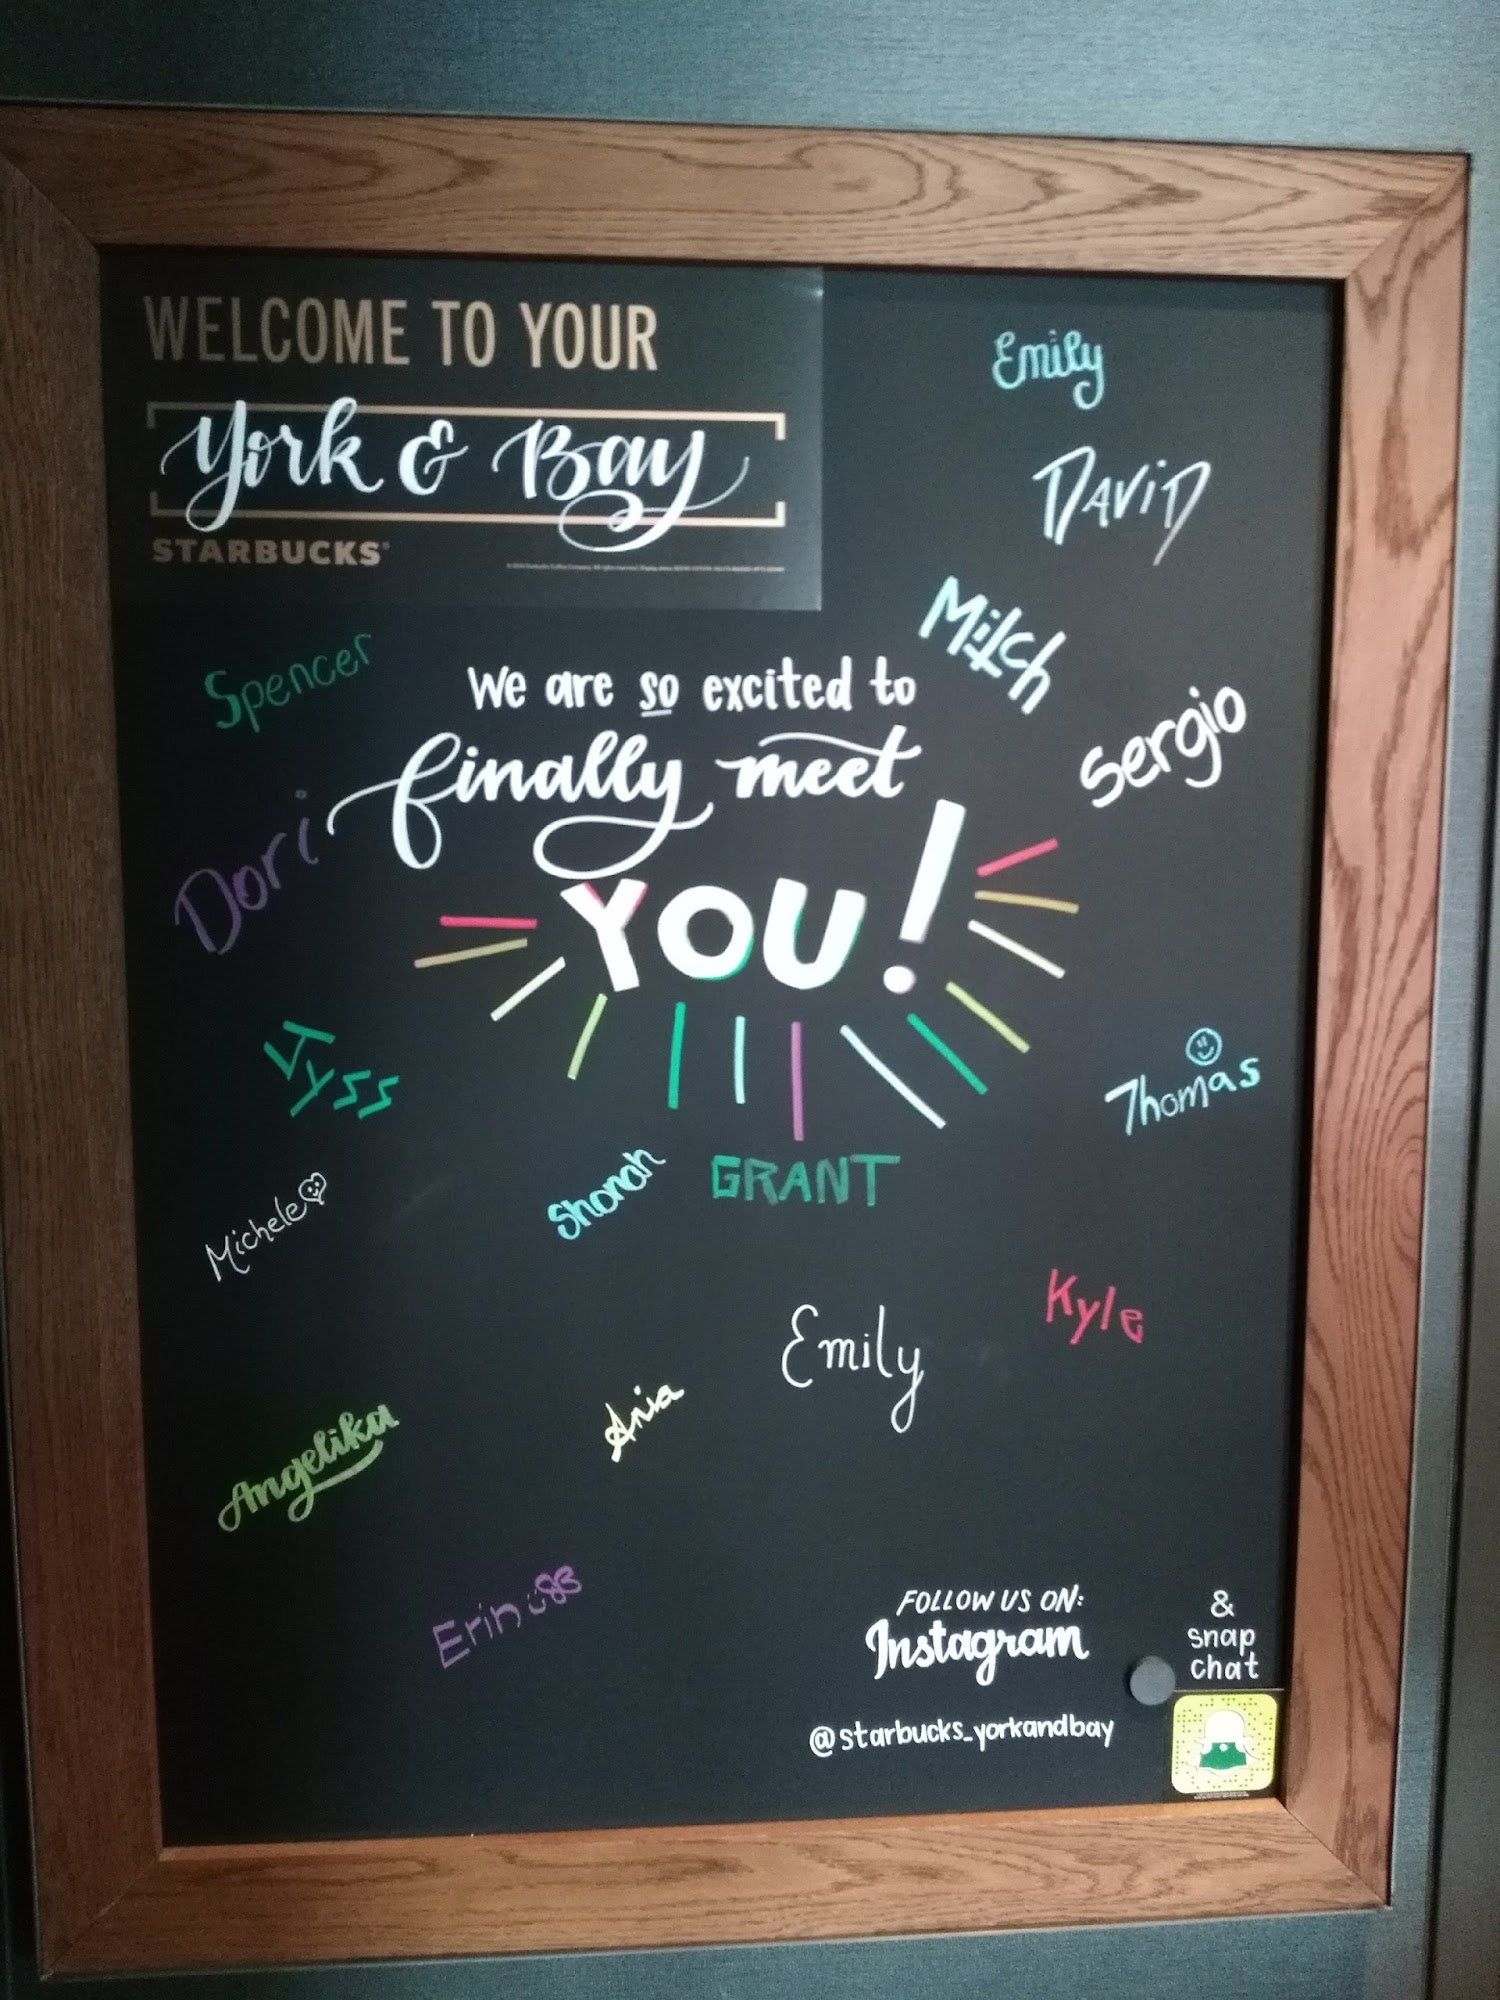 WELCOME TO YOUR
York & Bay
STARBUCKS
Emily
DAViD
Mitch
Sergio
Spencer
We are so excited to
finally meet
YOU!
Dori
Lyss
Thomas
Michele
Shonah
GRANT
Kyle
Emily
Ania
Angelika
Erin
FOLLOW US ON:
Instagram
@starbucks_yorkandbay
&
snap
chat